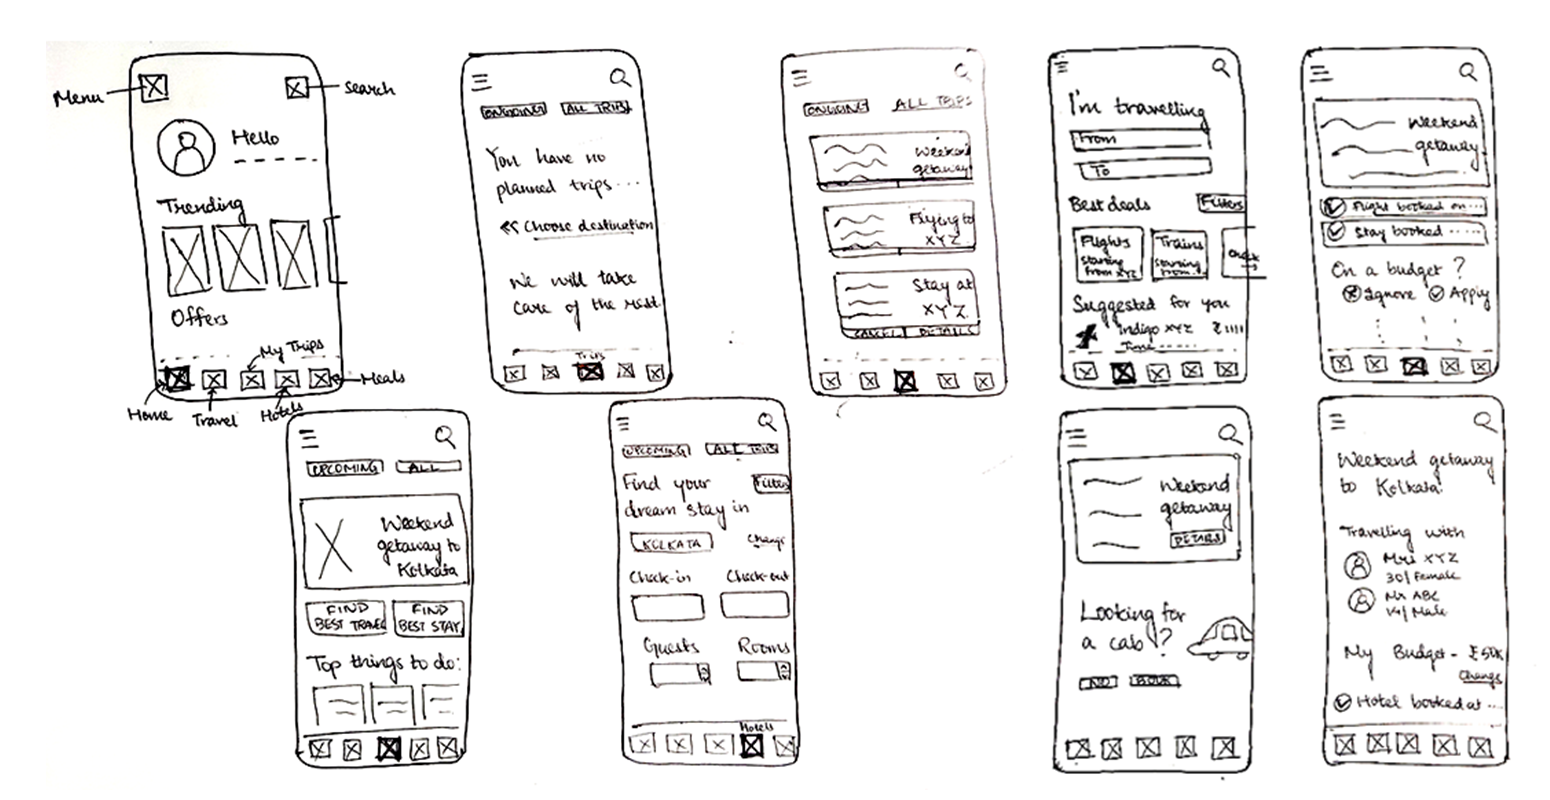 Menu
Search
Hello
Trending
Offers
My Trips
Meals
Home
Travel
Hotels
ONGOING
ALL TRIPS
You have no
planned trips...
<< Choose destination
We will take
care of the rest.
Trips
ONGOING
ALL TRIPS
Weekend
getaway
Flying to
XYZ
Stay at
XYZ
CANCEL
DETAILS
I'm travelling
From
To
Best deals
Filters
Flights
starting
from XYZ
Trains
starting
from..
Suggested for you
Indigo XYZ
Time
Weekend
getaway
Flight booked on...
Stay booked .....
On a budget ?
Ignore
Apply
UPCOMING
ALL
Weekend
getaway to
Kolkata
FIND
BEST TRAVEL
FIND
BEST STAY
Top things to do:
UPCOMING
ALL TRIPS
Find your
Filters
dream stay in
KOLKATA
Change
Check-in
Check-out
Guests
Rooms
Hotels
Weekend
getaway
DETAILS
Looking for
a cab ?
NO
BOOK
Weekend getaway
to Kolkata!
Travelling with
Mrs XYZ
30/Female
Mr ABC
/Male
My Budget - ₹50K
Change
Hotel booked at ...